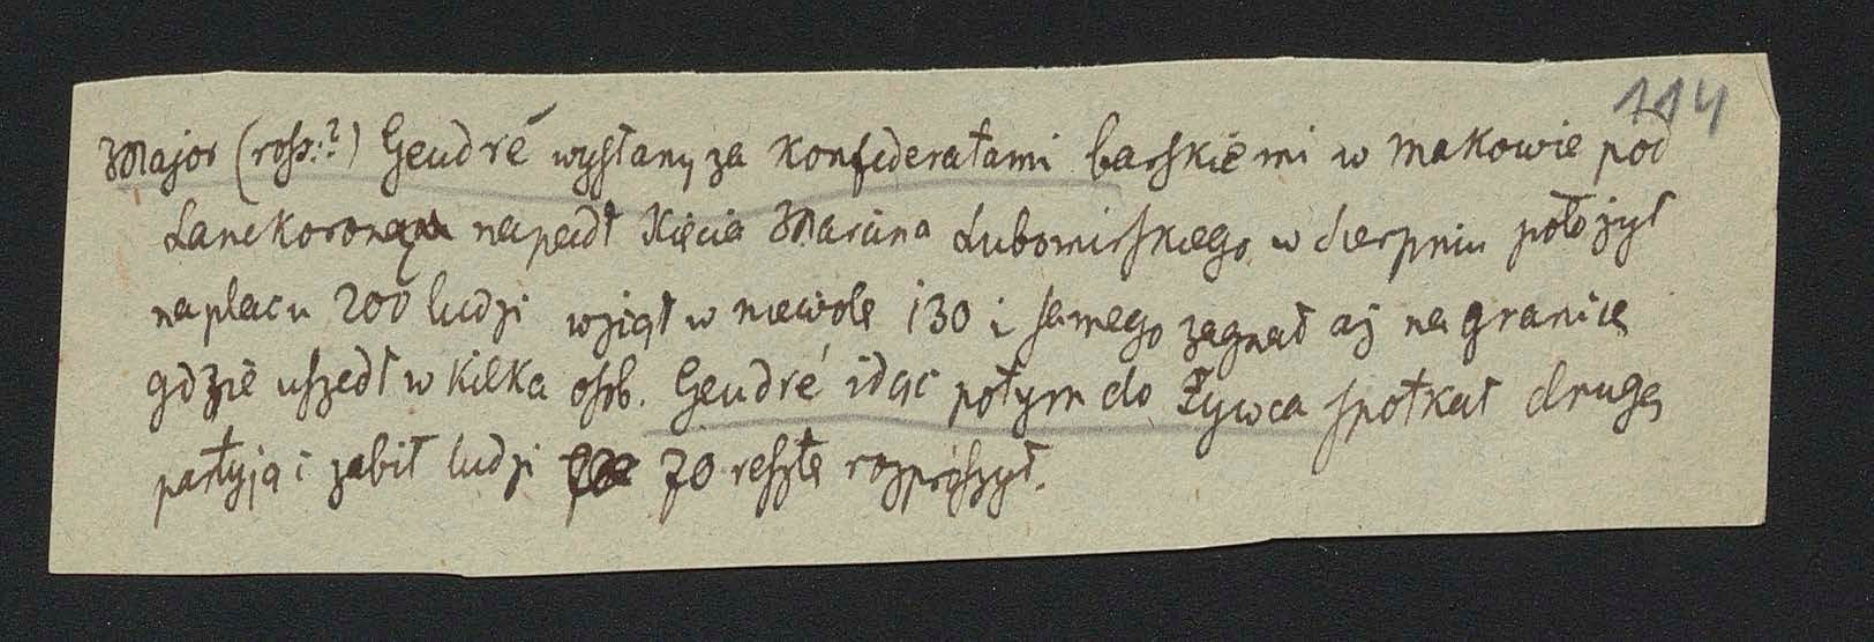 114
Major (ross:?) Geudré wysłany za Konfederatami barskiemi w Makowie pod
Lanckoroną napadł Xięcia Marcina Lubomirskiego w Sierpniu położył
na placu 200 ludzi wziął w niewole 130 i samego zagnał aż na granicę
gdzie uszedł w kilka osób. Geudré idąc potym do Żywca spotkał drugą
partyją i zabił ludzi 70 resztę rozproszył.